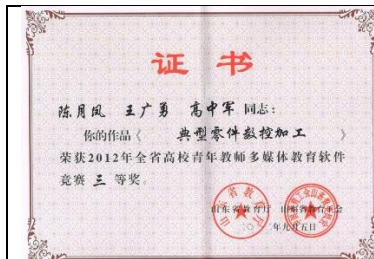 证书
陈月凤 王广勇 高中军 同志：
你的作品《 典型零件数控加工 》
荣获2012年全省高校青年教师多媒体教育软件
竞赛 三 等奖。
山东省教育厅
年九月五日
山东省教育厅